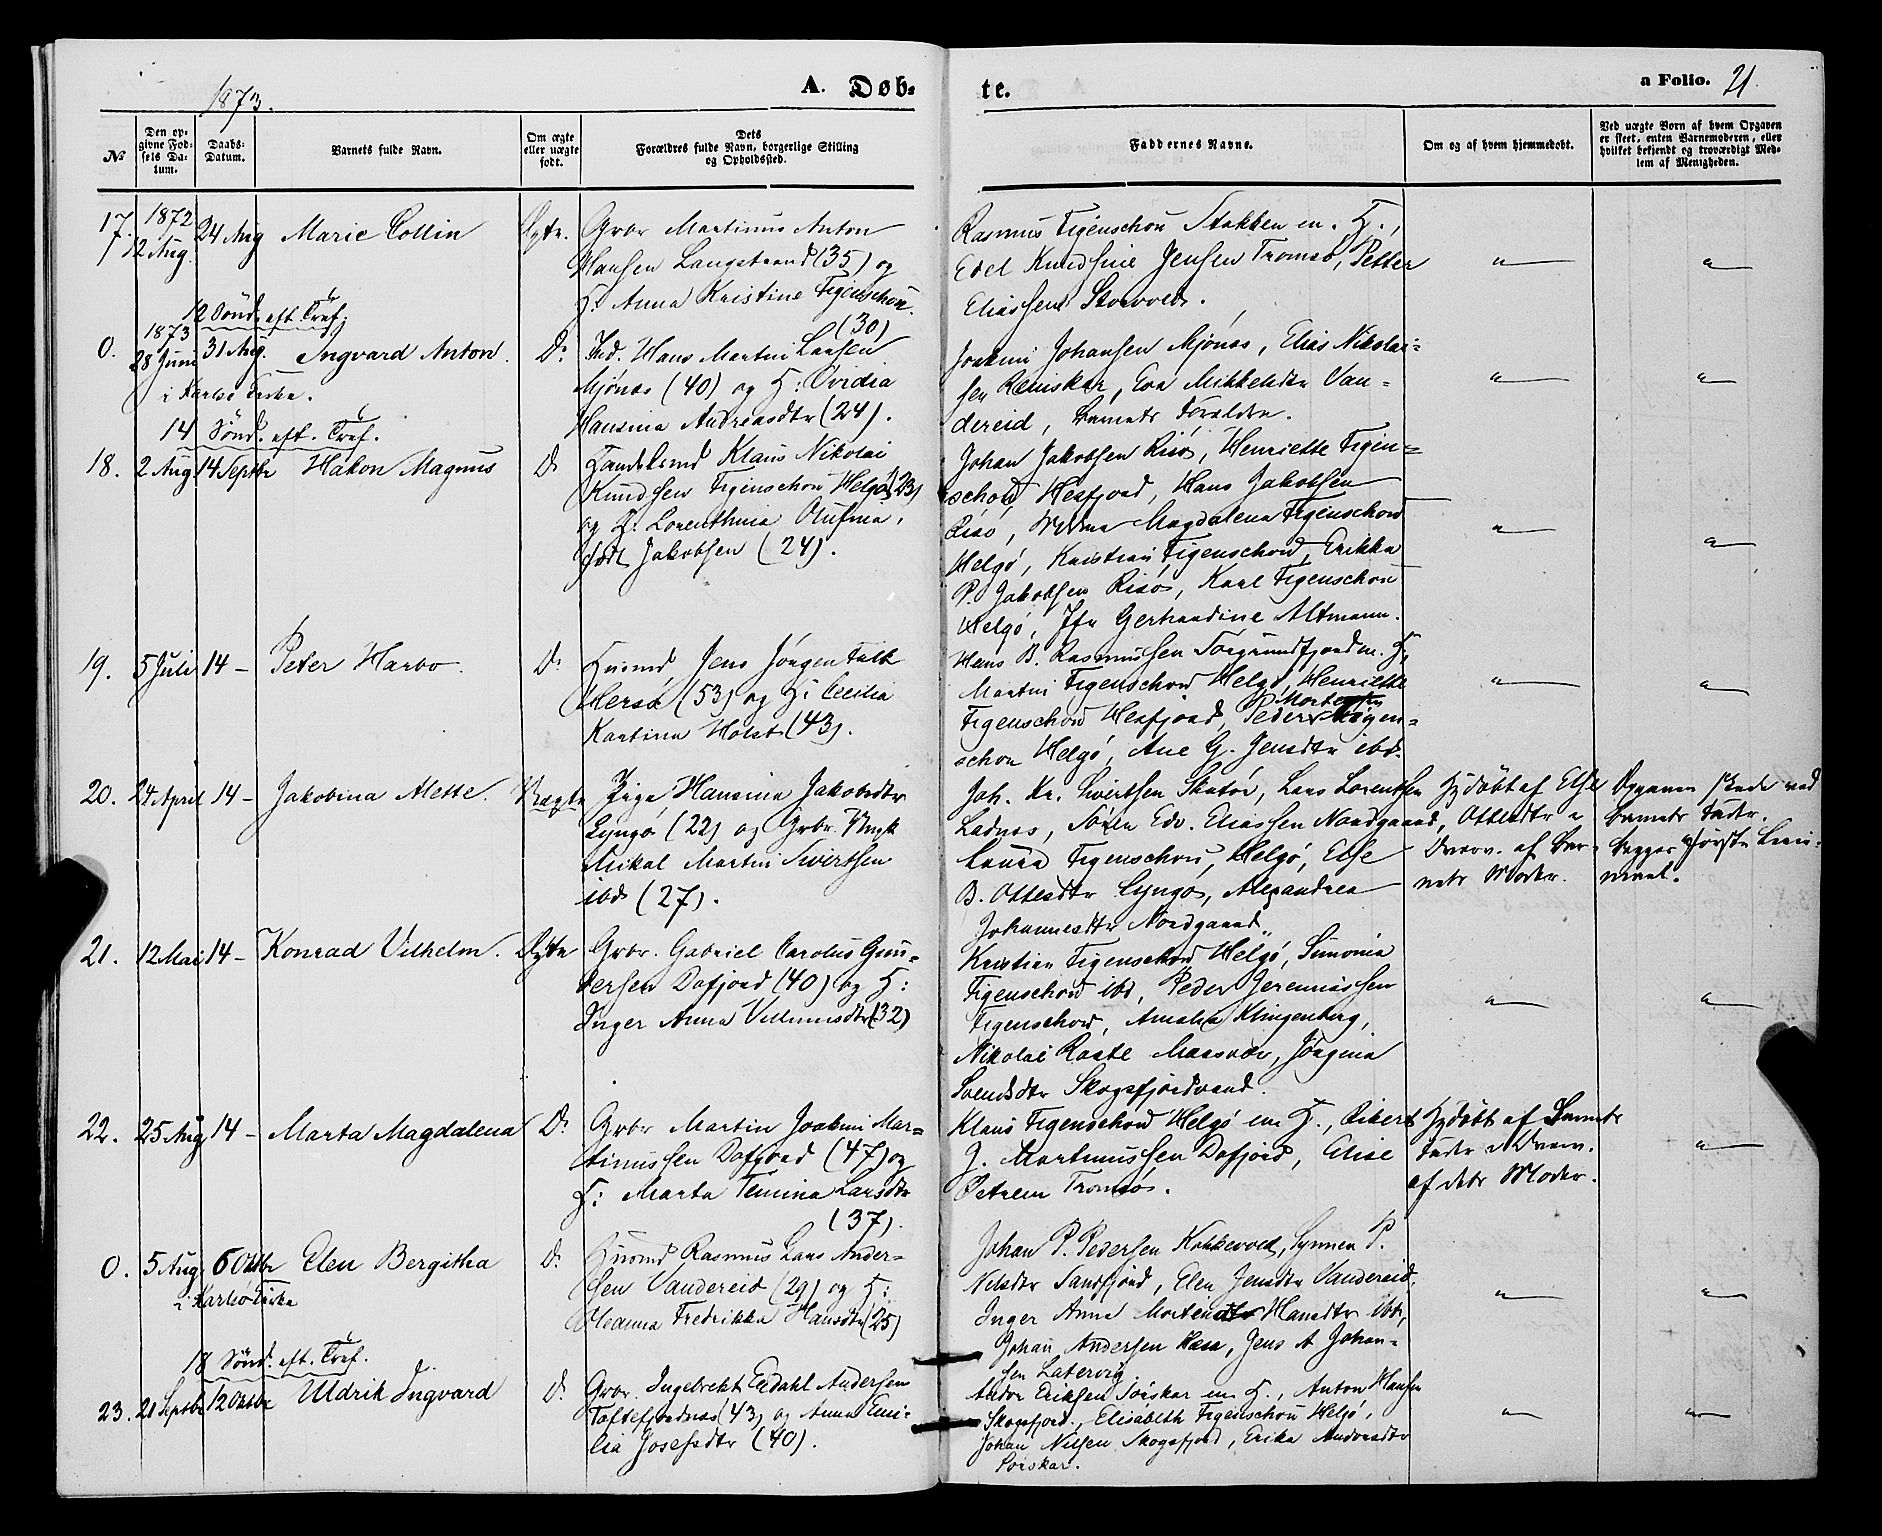 1873.
A. Døb-
te.
a Folio. 21.
No
Den op-
givne Fød-
sels Da-
tum.
Daabs-
Datum.
Barnets fulde Navn.
Om ægte
eller uægte
født.
Dets
Forældres fulde Navn, borgerlige Stilling
og Opholdssted.
Faddernes Navne.
Om og af hvem hjemmedøbt.
Ved uægte Børn af hvem Opgaven
er skeet, enten Barnemoderen, eller
hvilket bekjendt og troværdigt Med-
lem af Menigheden.
17. 1872 12 Aug. 24 Aug Marie Collin Ægte.
Grbr Martinus Anton
Hansen Langstrand (35) og
H: Anna Kristine Figenschou
(30)
Rasmus Figenschou Stakken m. H.,
Edel Knudsine Jensen Tromsø, Petter
Eliassen Storvold.
12 Sönd. eft. Tref.
0. 1873 28 Juni 31 Aug. Ingvard Anton. Do
i Karlsö Kirke.
Ind. Hans Martin Larsen
Mjönes (40) og H: Ovidia
Hansina Andreasdtr (24).
Joakim Johansen Mjönes, Elias Nikolai-
sen Reinskar, Eva Mikkelsdtr Van-
dereid, Barnets Foreldre.
14 Sönd. eft. Tref.
18. 2 Aug 14 Septbr Hakon Magnus Do
Handelsmd Klaus Nikolai
Knudsen Figenschou Helgö (23)
og H: Lorenthina Olufina,
född Jakobsen (24).
Johan Jakobsen Risö, Henriette Figen-
schou Hesfjord, Hans Jakobsen
Risö, Magdalena Figenschou
Helgö, Kristian Figenschou, Erikka
P. Jakobsen Risö, Karl Figenschou
Helgö, Jfr Gerhardine Altmann.
19. 5 Juli 14 - Peter Harbo. Do
Husmd Jens Jörgen Falk
Hersö (53) og H: Cecilia
Kartina Holst (43).
Hans B. Rasmussen Sörgrundfjord m. H,
Martin Figenschou Helgö, Henriette
Figenschou Hesfjord, Peder Mortensen Figen-
schou Helgö, Ane G. Jensdtr ibd.
20. 24 April 14 - Jakobina Alette. Uægte
Pige Hansina Jakobsdtr
Lyngö (22) og Grbr. Ungk
Mikal Martin Sivertsen
ibd (27).
Joh. Kr. Sivertsen Skatör, Lars Lorentsen
Ladnes, Sören Edv. Eliassen Nordgaard,
Laura Figenschou, Helgö, Else
B. Ottesdtr Lyngö, Alexandrea
Johannesdtr Nordgaard.
Hjdöbt af Else
Ottesdtr
Overv. af Bar-
nets Moder.
Opgaven skede ved
Barnets Fader.
Begges förste Leier-
maal.
21. 12 Mai 14 - Konrad Vilhelm. Ægte
Grbr. Gabriel Carolus Gun-
dersen Dafjord (40) og H:
Inger Anna Villumsdtr (32)
Kristian Figenschou Helgö, Simonia
Figenschou ibd, Peder Jeremiassen
Figenschou, Amalia Klingenberg,
Nikolai Raste Maasvær, Jörgina
Svendsdtr Skogsfjordvand.
22. 25 Aug 14 - Marta Magdalena Do
Grbr Martin Joakim Mar-
tinussen Dafjord (47) og
H: Marta Temina Larsdtr
(37).
Klaus Figenschou Helgö m H., Rikert
J. Martinussen Dafjord, Elise
Petrem Tromsö.
Hjdöbt af Barnets
Fader Overv.
af dets Moder.
0. 5 Aug 6 Oktbr Elen Bergitha Do
i Karlsö Kirke
Husmd Rasmus Lars Ander-
sen Vandereid (29) og H:
Oleanna Fredrikka Hansdtr (25)
Johan P. Pedersen Kokkevold, Synnen P.
Nilsdtr Sandfjord, Elen Jensdtr Vandereid.
Inger Anna Hansdtr ibd,
Johan Andersen Hasa, Jens A Johan-
sen Latervig.
18 Sönd. eft. Tref.
23. 21 Septbr 12 Oktbr Uldrik Ingvard Do
Grbr. Ingebrekt Erdahl Andersen
Toftefjordnes (43) og Anna Emi-
lia Josefsdtr (40).
Andor Eriksen Sörskar m H., Anton Hansen
Skogsfjord., Elisabeth Figenschou Helgö,
Johan Nilsen Skogsfjord, Erika Andreasdtr
Sörskar.